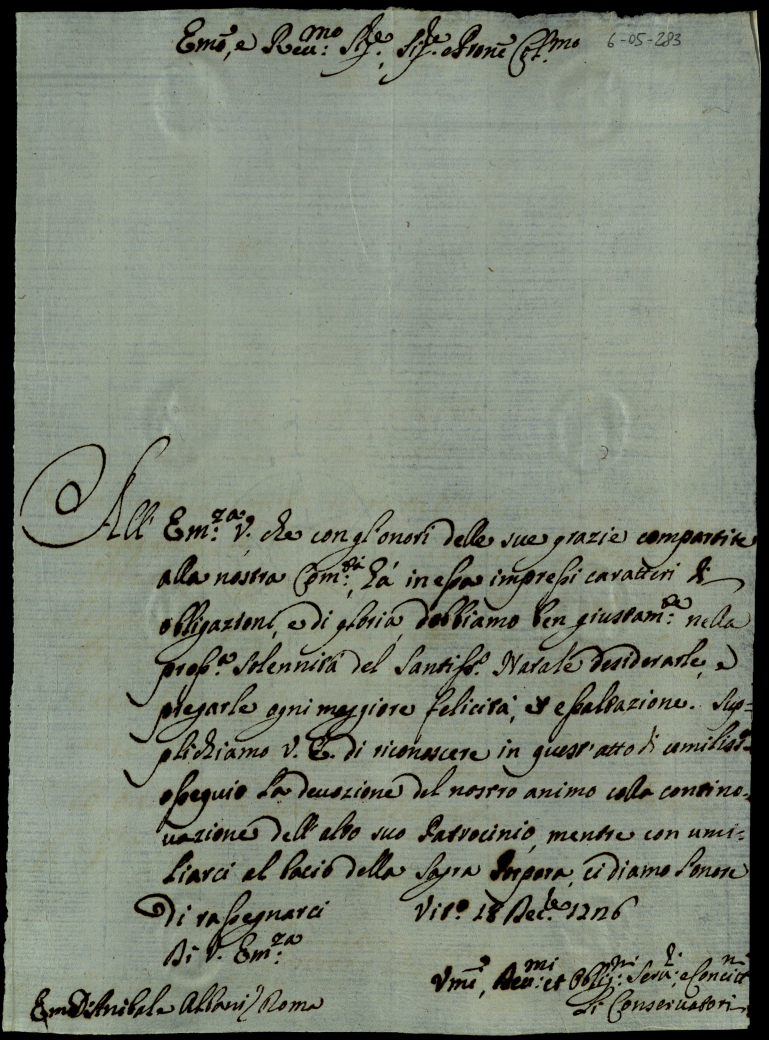 Emo, e Reu:mo Sigre, Sigre e Prone Col:mo 6-05-283
All' Em:za V. che con gl'onori delle sue grazie compartite
alla nostra Com:tà, hà in essa impressi caratteri di
obligazioni, e di gloria, dobbiamo ben giustam:te nella
pross:a Solennità del Santiss:o Natale desiderarle, e
pregarle ogni maggiore felicità, et essaltazione. Sup-
plichiamo V. E. di riconoscere in quest'atto di umiliss:o
ossequio la devozione del nostro animo colla contino-
vazione dell'alto suo Patrocinio, mentre con umi-
liarci al bacio della Sagra Porpora, ci diamo l'onore
di rassegnarci Vit:o 18 Dec:bre 1726
Di V. Em:za
Vmi, Deu:mi et Obblig:mi Seru:ri e
Em Di Anibale Albani / Roma Li Conservatori